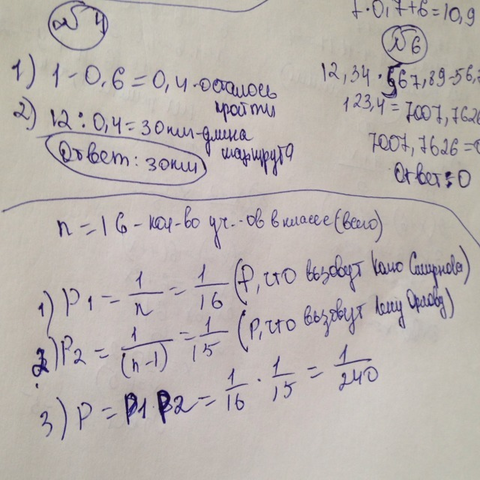 7·0,7+6=10,9
№4
№6
1) 1-0,6=0,4-осталось
пройти
2) 12:0,4=30км-длина
маршрута
Ответ: 30км
12,34·567,89-56,7
123,4=7007,7626
7007,7626=0
Ответ: 0
n=16-кол-во уч.-ов в классе (всего)
1) P1=1/n=1/16 (P, что вызовут Смирнова)
2) P2=1/(n-1)=1/15 (P, что вызовут Орлову)
3) P=P1·P2=1/16·1/15=1/240